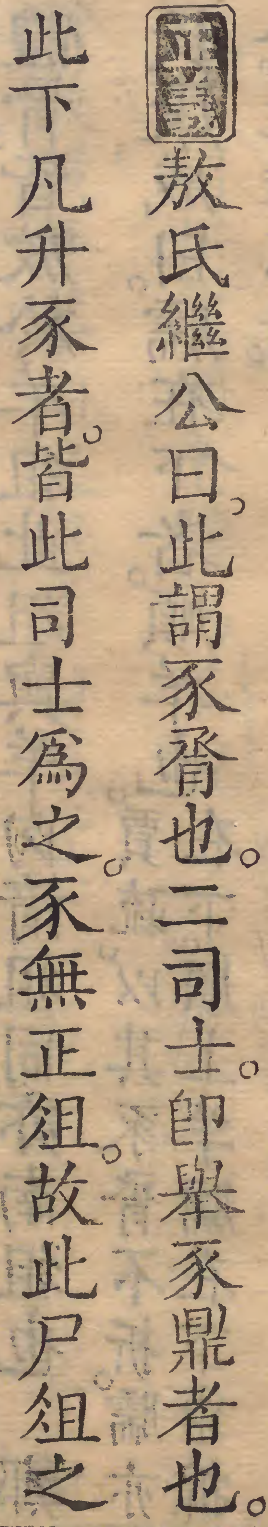 正義敖氏繼公曰。此謂豕脀也。二司士。卽舉豕鼎者也。
此下凡升豕者。皆此司士爲之。豕無正俎。故此尸俎之